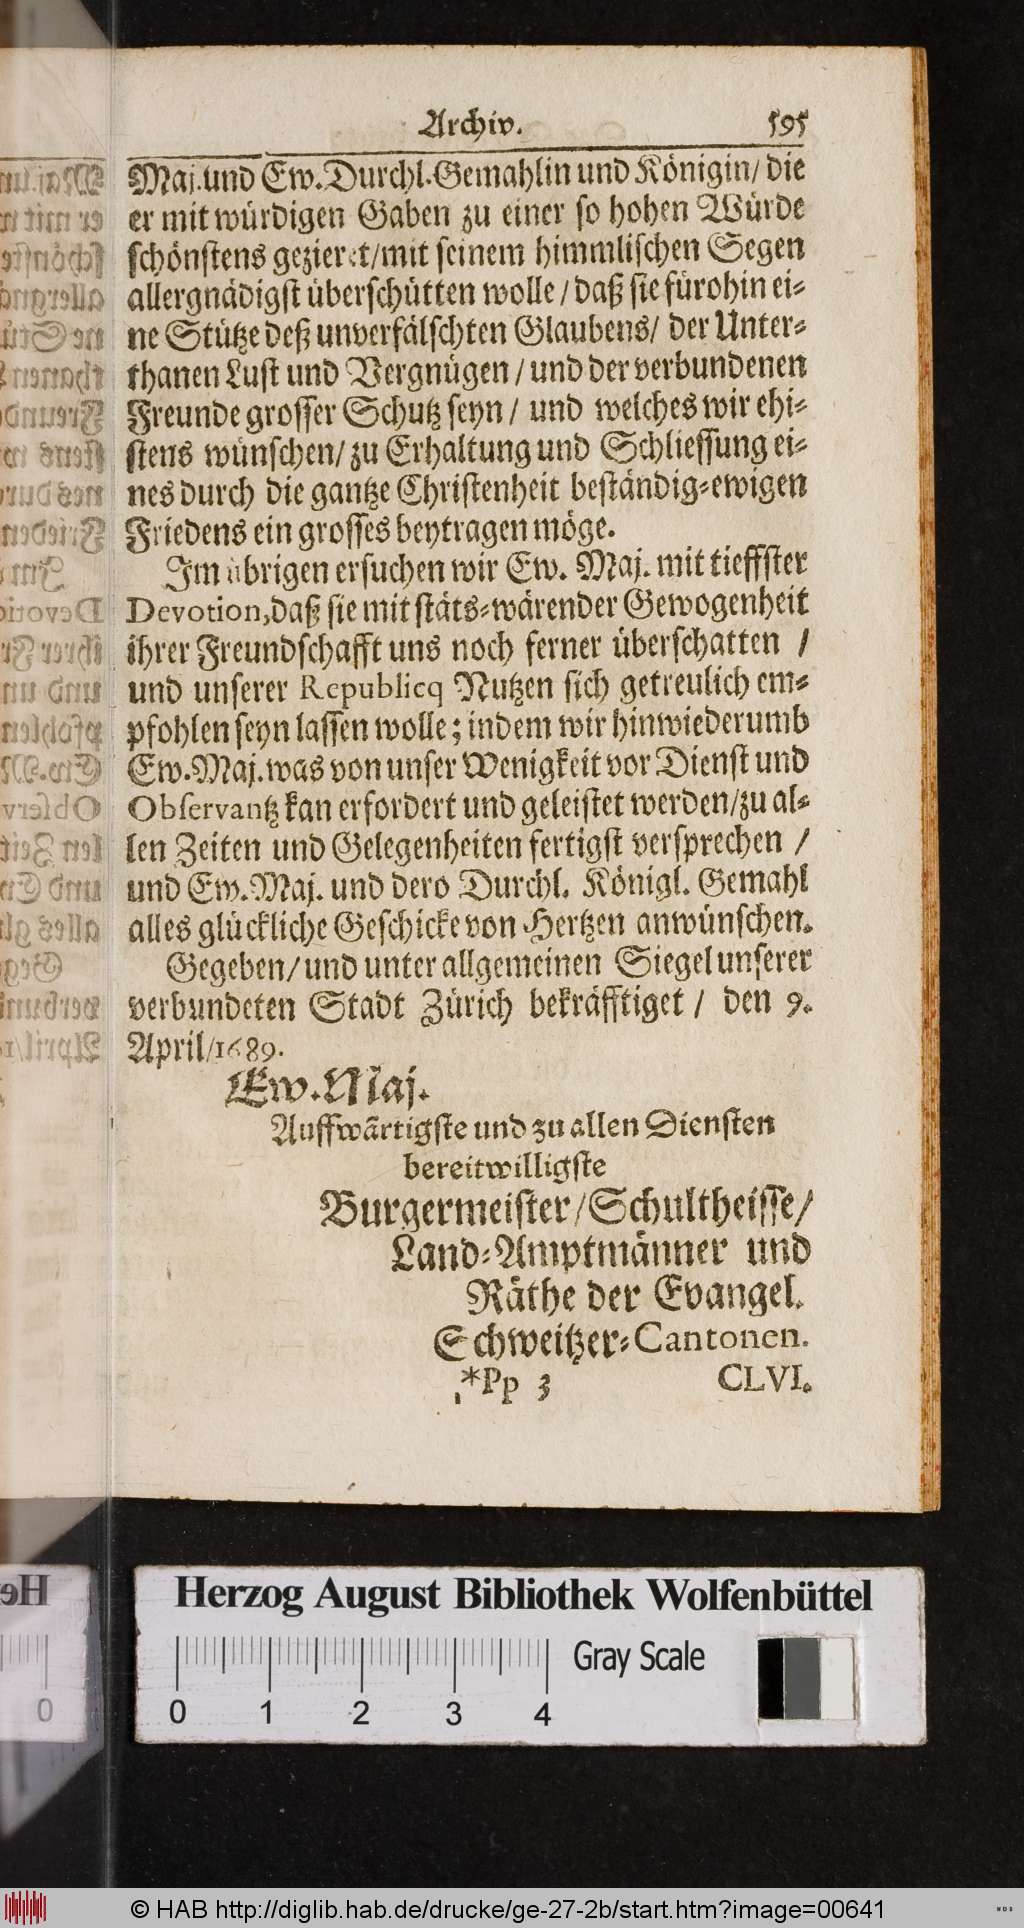 Archiv. 595
Maj. und Ew. Durchl. Gemahlin und Königin/ die
er mit würdigen Gaben zu einer so hohen Würde
schönstens gezieret/mit seinem himmlischen Segen
allergnädigst überschütten wolle / daß sie fürohin ei-
ne Stütze deß unverfälschten Glaubens/ der Unter-
thanen Lust und Vergnügen / und der verbundenen
Freunde grosser Schutz seyn / und welches wir ehi-
stens wünschen/ zu Erhaltung und Schliessung ei-
nes durch die gantze Christenheit beständig-ewigen
Friedens ein grosses beytragen möge.
Im übrigen ersuchen wir Ew. Maj. mit tieffster
Devotion, daß sie mit stäts-wärender Gewogenheit
ihrer Freundschafft uns noch ferner überschatten /
und unserer Republicq Nutzen sich getreulich em-
pfohlen seyn lassen wolle; indem wir hinwiederumb
Ew. Maj. was von unser Wenigkeit vor Dienst und
Observantz kan erfordert und geleistet werden/zu al-
len Zeiten und Gelegenheiten fertigst versprechen /
und Ew. Maj. und dero Durchl. Königl. Gemahl
alles glückliche Geschicke von Hertzen anwünschen.
Gegeben/ und unter allgemeinen Siegel unserer
verbundeten Stadt Zürich bekräfftiget / den 9.
April/1689.
Ew. Maj.
Auffwärtigste und zu allen Diensten
bereitwilligste
Burgermeister/Schultheisse/
Land-Amptmänner und
Räthe der Evangel.
Schweitzer-Cantonen.
*Pp 3 CLVI.
Herzog August Bibliothek Wolfenbüttel
Gray Scale
0 1 2 3 4
© HAB http://diglib.hab.de/drucke/ge-27-2b/start.htm?image=00641